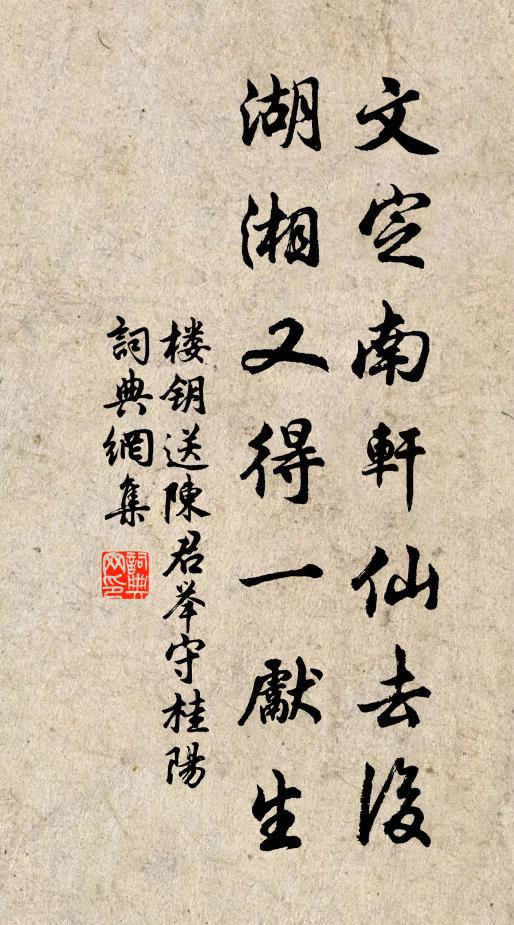 文定南軒仙去後
湖湘又得一獻生
楼钥送陳君举守桂陽
詞典網集
詞典网印